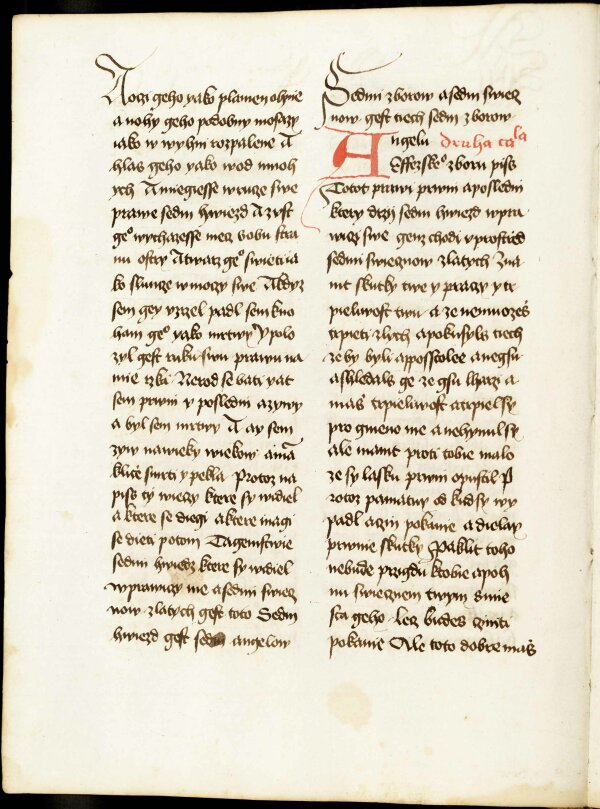 A oczi geho yako plamen ohnie
a nohy geho podobny mosazy
iako w wyhni rozpalene A
hlas geho yako wod mnoh
ych A miegiesse w ruce swe
prawe sedm hwiezd A z vst
geº wychazesse mecz vobu stra
nu ostry A twarz geº swieti ia
ko slunce w moczy swe A kdyz
sem gey vzrzel padl sem k no
ham geº yako mrtwy Y polo
zyl gest ruku swu prawu na
mie rzka Nerod se bati yat
sem prwni y posledni a zywy
a byl sem mrtwy A ay sem
zyw na wieky wiekow a mā
klicze smrti y pekla Protoz na
piss ty wieczy ktere sy widiel
a ktere se diegi a ktere magi
se dieti potom Tagemstwie
sedm hwiezd ktere sy widiel
w prawiczy me a sedm swiecz
now zlatych gest toto Sedm
hwiezd gest sedm angelow
Sedmi zborow a sedm swiecz
now gest tiech sedm zborow
Angelu druha ca^la
Effezskeº zboru piss
Totot prawi prwni a posledni
ktery drzi sedm hwiezd w pra
wiczi swe genz chodi vprostrzed
sedmi swiecznow zlatych Zna
mt skutky twe y praczy y tr
pieliwost twu a ze nemuozes
trpieti zlych a pokusyls tiech
ze by byli appossstolee a negsu
a shledals ge ze gsu lharzi a
mas trpieliwost a trpiel sy
pro gmeno me a nehynul sy
ale mamt proti tobie malo
ze sy lasku prwni opustil P
rotoz pamatuy od kud sy wy
padl a czin pokanie a dielay
prwnie skutky Paklit toho
nebude przigdu k tobie a poh
nu swiecznem twym s mie
sta geho lecz budes cziniti
pokanie Ale toto dobre mas